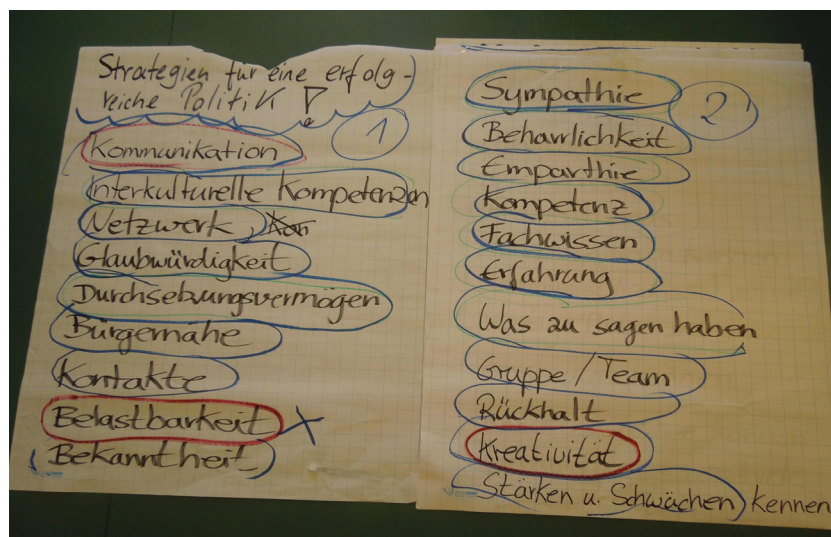 Strategien für eine erfolg-
reiche Politik !
1
Kommunikation
Interkulturelle Kompetenzen
Netzwerk, Kon
Glaubwürdigkeit
Durchsetzungsvermögen
Bürgernähe
Kontakte
Belastbarkeit X
Bekanntheit
2
Sympathie
Beharrlichkeit
Emparthie
Kompetenz
Fachwissen
Erfahrung
Was zu sagen haben
Gruppe / Team
Rückhalt
Kreativität
Stärken u. Schwächen kennen